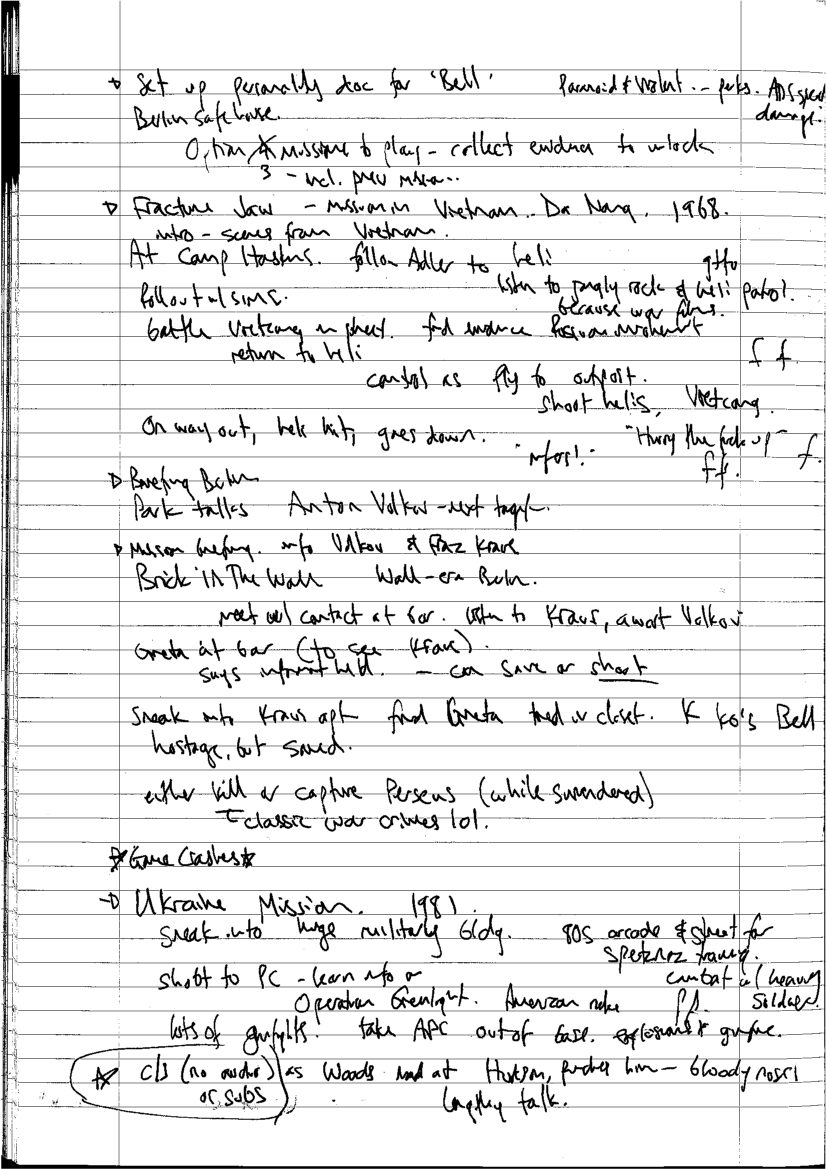 Set up personality doc for 'Bell' Paranoid & Violent - perks. ADS speed
Berlin safehouse. damage.
Option missions to play - collect evidence to unlock
3 - incl. prev mission..
Fracture Jaw - mission in Vietnam.. Da Nang. 1968.
intro - scenes from Vietnam.
At Camp Haskins. follow Adler to heli
Rollout w/ sims. listen to jungly rock & heli patrol.
because war films.
battle Vietcong in find evidence Russian
return to heli f f.
control as fly to outpost.
shoot helis, Vietcong.
On way out, heli hit, goes down. "Hurry the fuck up" f.
ff.
Briefing Berlin
Park talks Anton Volkov - next target.
Mission briefing. info Volkov & Franz Kraus
Brick in The Wall Wall-era Berlin.
meet w/ contact at bar. listen to Kraus, await Volkov
Greta at bar (to see Kraus).
says informant held. - can save or shoot
Sneak into Kraus apt find Greta tied in closet. K ko's Bell
hostage, but saved.
either kill or capture Perseus (while surrendered)
classic war crimes lol.
*Game Crashes*
Ukraine Mission. 1981.
sneak into huge military bldg. 80s arcade & street for
spetsnaz training.
shoot to PC - learn info on combat w/ heavy
Operation Greenlight. American nuke soldiers.
lots of gunfights. take APC out of base. explosions & gunfire.
c/s (no audio) as Woods mad at Hudson, punches him - bloody nose
or subs lengthy talk.